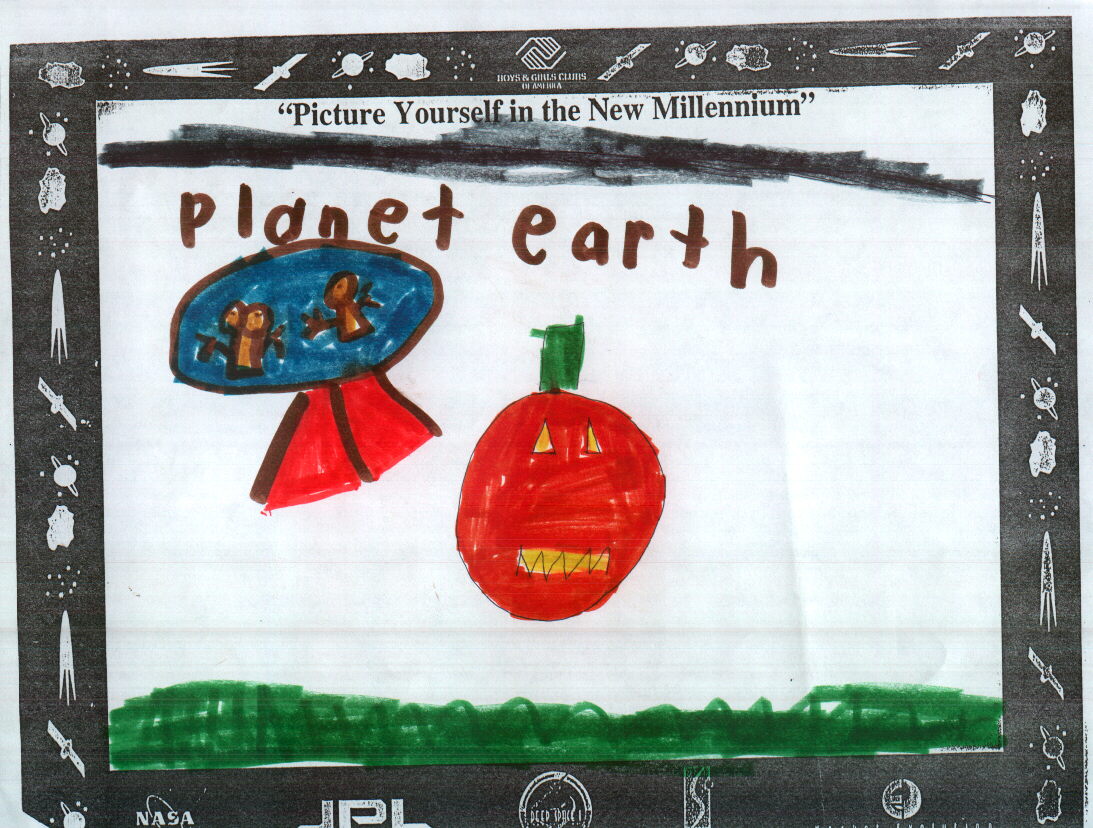 BOYS & GIRLS CLUBS
OF AMERICA
“Picture Yourself in the New Millennium”
planet earth
NASA
JPL
DEEP SPACE 1